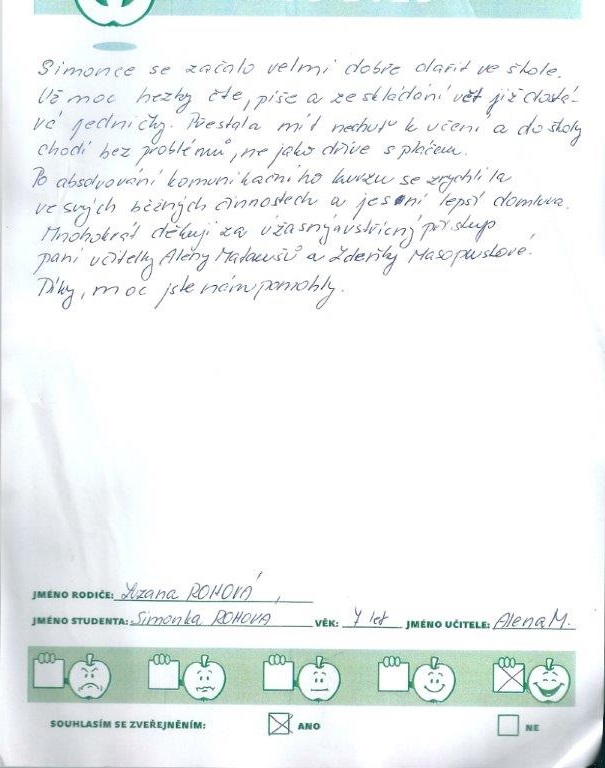 Simonce se začalo velmi dobře dařit ve škole.
Už moc hezky čte, píše a ze skládání vět již dostá-
vá jedničky. Přestala mít nechuť k učení a do školy
chodí bez problémů, ne jako dříve s pláčem.
Po absolvování komunikačního kurzu se zrychlila
ve svých běžných činnostech a je s ní lepší domluva.
Mnohokrát děkuji za úžasný a vstřícný přístup
paní učitelky Aleny Matoušů a Zdeňky Masopustové.
Díky, moc jste nám pomohly.
JMÉNO RODIČE: Zuzana ROHOVÁ
JMÉNO STUDENTA: Simonka ROHOVA VĚK: 7 let JMÉNO UČITELE: Alena M.
SOUHLASÍM SE ZVEŘEJNĚNÍM: ANO NE